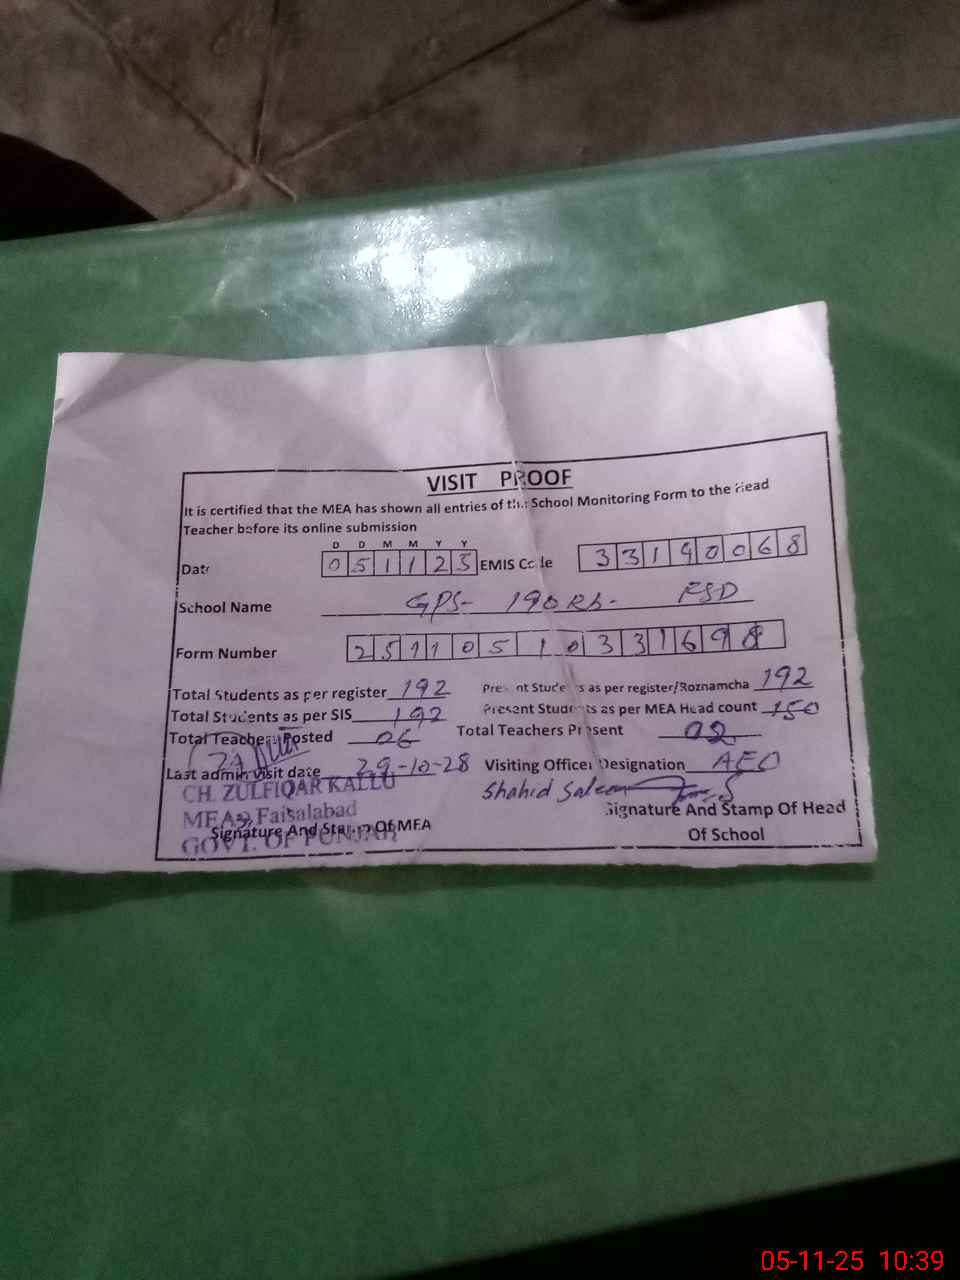 VISIT PROOF
It is certified that the MEA has shown all entries of the School Monitoring Form to the Head
Teacher before its online submission
D D M M Y Y
Date 0 5 1 1 2 5 EMIS Code 3 3 1 9 0 0 6 8
School Name GPS- 190 RB- FSD
Form Number 2 5 1 1 0 5 1 0 3 3 1 6 9 8
Total Students as per register 192 Present Students as per register/Roznamcha 192
Total Students as per SIS 192 Present Students as per MEA Head count 150
Total Teachers Posted 06 Total Teachers Present 02
Last admin visit date 29-10-28 Visiting Officer Designation AEO
CH. ZULFIQAR KALLU
Shahid Saleem
MEA Faisalabad
Signature And Stamp Of MEA
GOVT. OF PUNJAB
Signature And Stamp Of Head
Of School
05-11-25 10:39